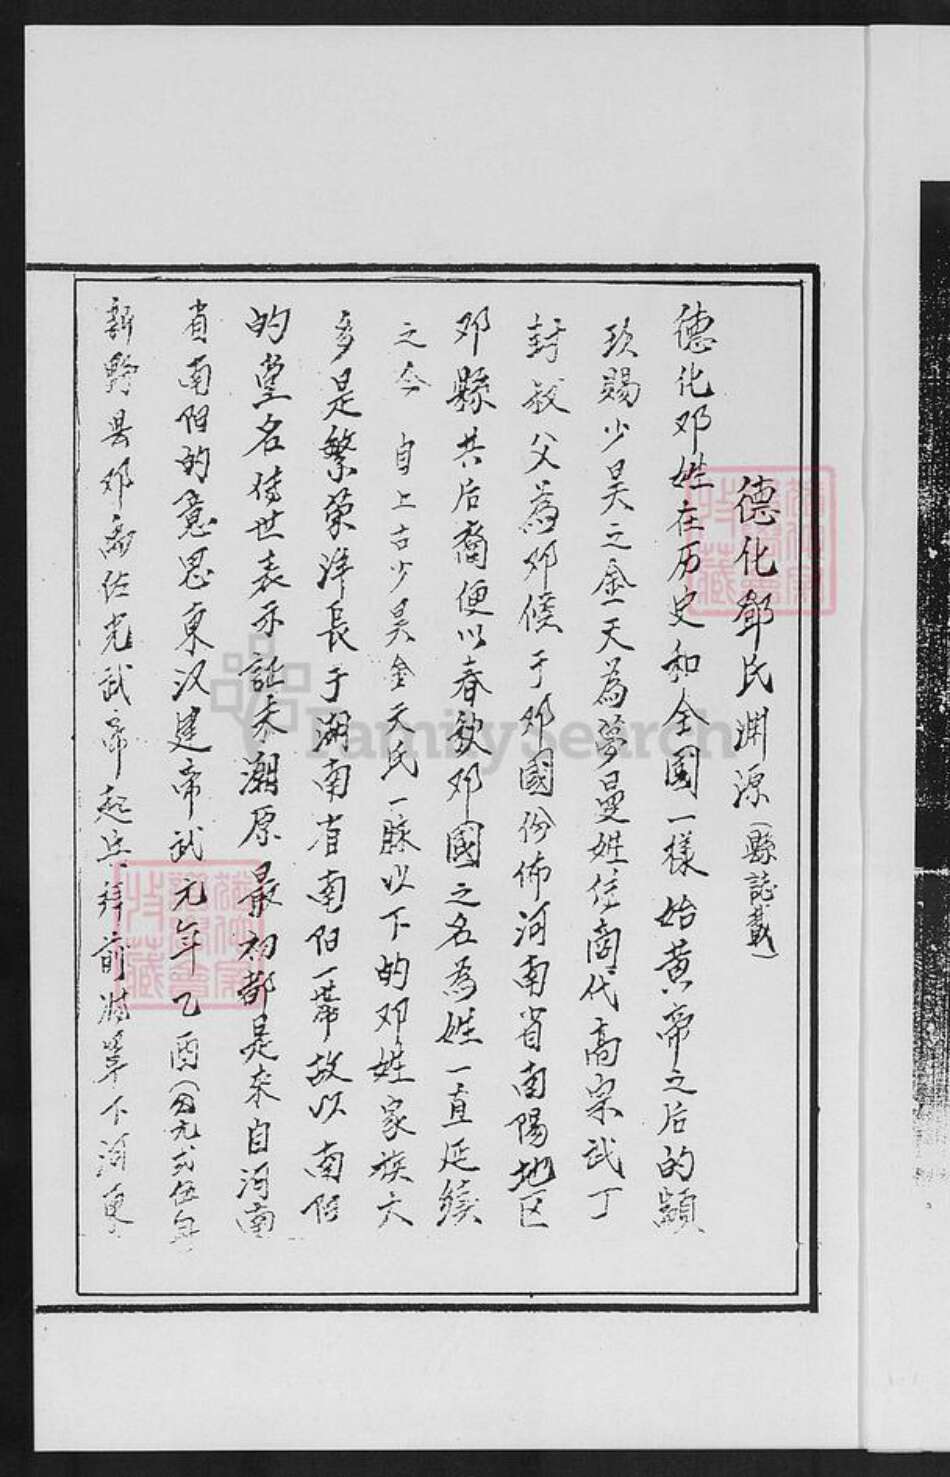 德化鄧氏渊源（縣誌載）
德化邓姓在历史和全国一樣始黄帝之后的顓
頊賜少昊之金天為曼姓位商代高宗武丁
封叔父為邓候于邓國份佈河南省南陽地区
邓縣共后裔便以春秋邓國之名為姓一直延续
之今 自上古少昊金天氏一脉以下的邓姓家族大
多是繁荣洋長于湖南省南阳一带故以南阳
的堂名传世表示証来潮原最初都是来自河南
省南阳的意思東汉建帝武元年乙酉（公元弍伍年
新野县邓禹佐光武帝起兵拜前将軍下河東
FamilySearch